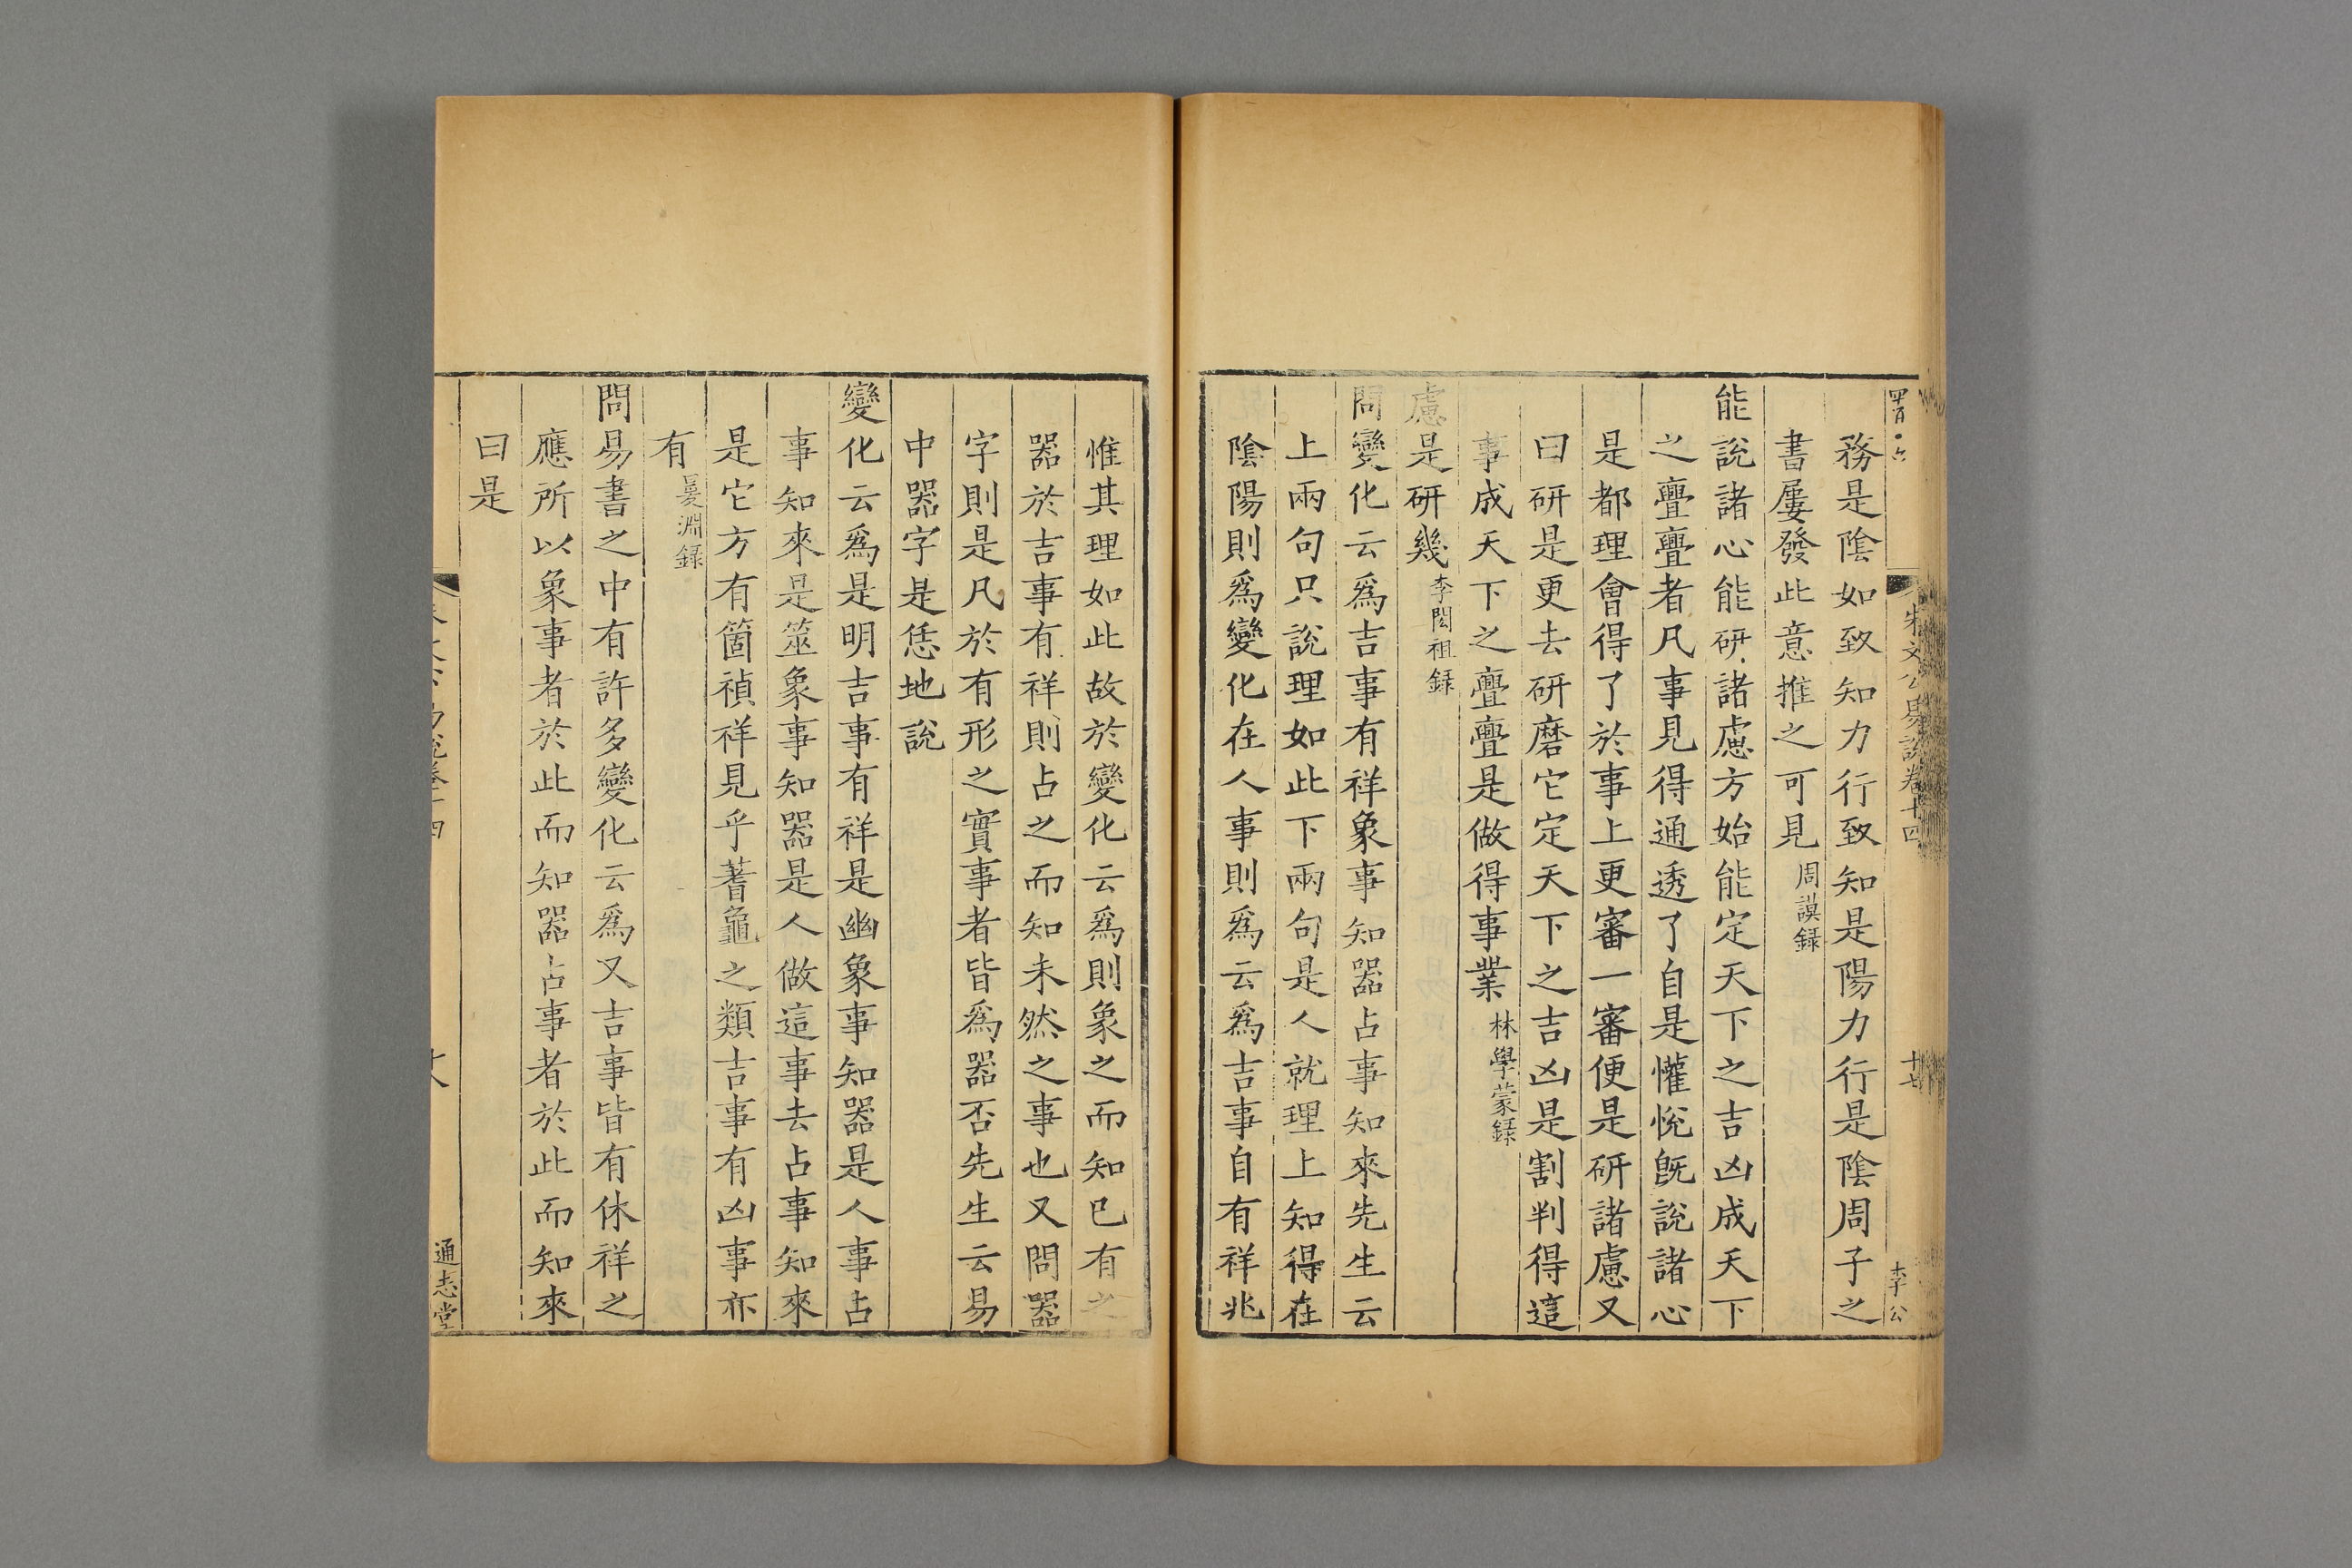 朱文公易説卷十四
十七
李公
務是陰如致知力行致知是陽力行是陰周子之
書屢發此意推之可見周謨録
能說諸心能研諸慮方始能定天下之吉凶成天下
之亹亹者凡事見得通透了自是懽悅旣說諸心
是都理會得了於事上更審一審便是研諸慮又
曰研是更去研磨它定天下之吉凶是割判得這
事成天下之亹亹是做得事業林學蒙録
慮是研幾李閎祖録
問變化云爲吉事有祥象事知器占事知來先生云
上兩句只說理如此下兩句是人就理上知得在
陰陽則爲變化在人事則爲云爲吉事自有祥兆
惟其理如此故於變化云爲則象之而知已有之
器於吉事有祥則占之而知未然之事也又問器
字則是凡於有形之實事者皆爲器否先生云易
中器字是恁地說
變化云爲是明吉事有祥是幽象事知器是人事占
事知來是筮象事知器是人做這事去占事知來
是它方有箇禎祥見乎蓍龜之類吉事有凶事亦
有㬊淵録
問易書之中有許多變化云爲又吉事皆有休祥之
應所以象事者於此而知器占事者於此而知來
曰是
十八
通志堂